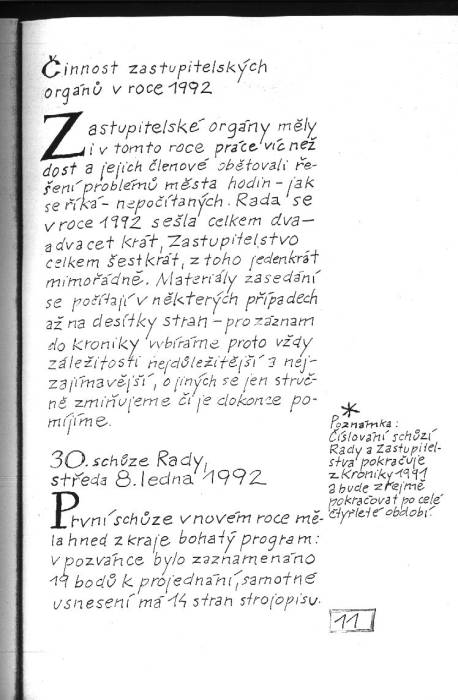 Činnost zastupitelských
orgánů v roce 1992
Zastupitelské orgány měly
i v tomto roce práce víc než
dost a jejich členové obětovali ře-
šení problémů města hodin – jak
se říká – nepočítaných. Rada se
v roce 1992 sešla celkem dva-
advacet krát, Zastupitelstvo
celkem šestkrát, z toho jedenkrát
mimořádně. Materiály zasedání
se počítají v některých případech
až na desítky stran – pro záznam
do kroniky vybíráme proto vždy
záležitosti nejdůležitější a nej-
zajímavější, o jiných se jen struč-
ně zmiňujeme či je dokonce po-
míjíme.
30. schůze Rady,
středa 8. ledna 1992
První schůze v novém roce mě-
la hned z kraje bohatý program:
v pozvánce bylo zaznamenáno
19 bodů k projednání, samotné
usnesení má 14 stran strojopisu.
*
Poznámka:
Číslování schůzí
Rady a Zastupitel-
stva pokračuje
z Kroniky 1991
a bude zřejmě
pokračovat po celé
čtyřleté období.
11